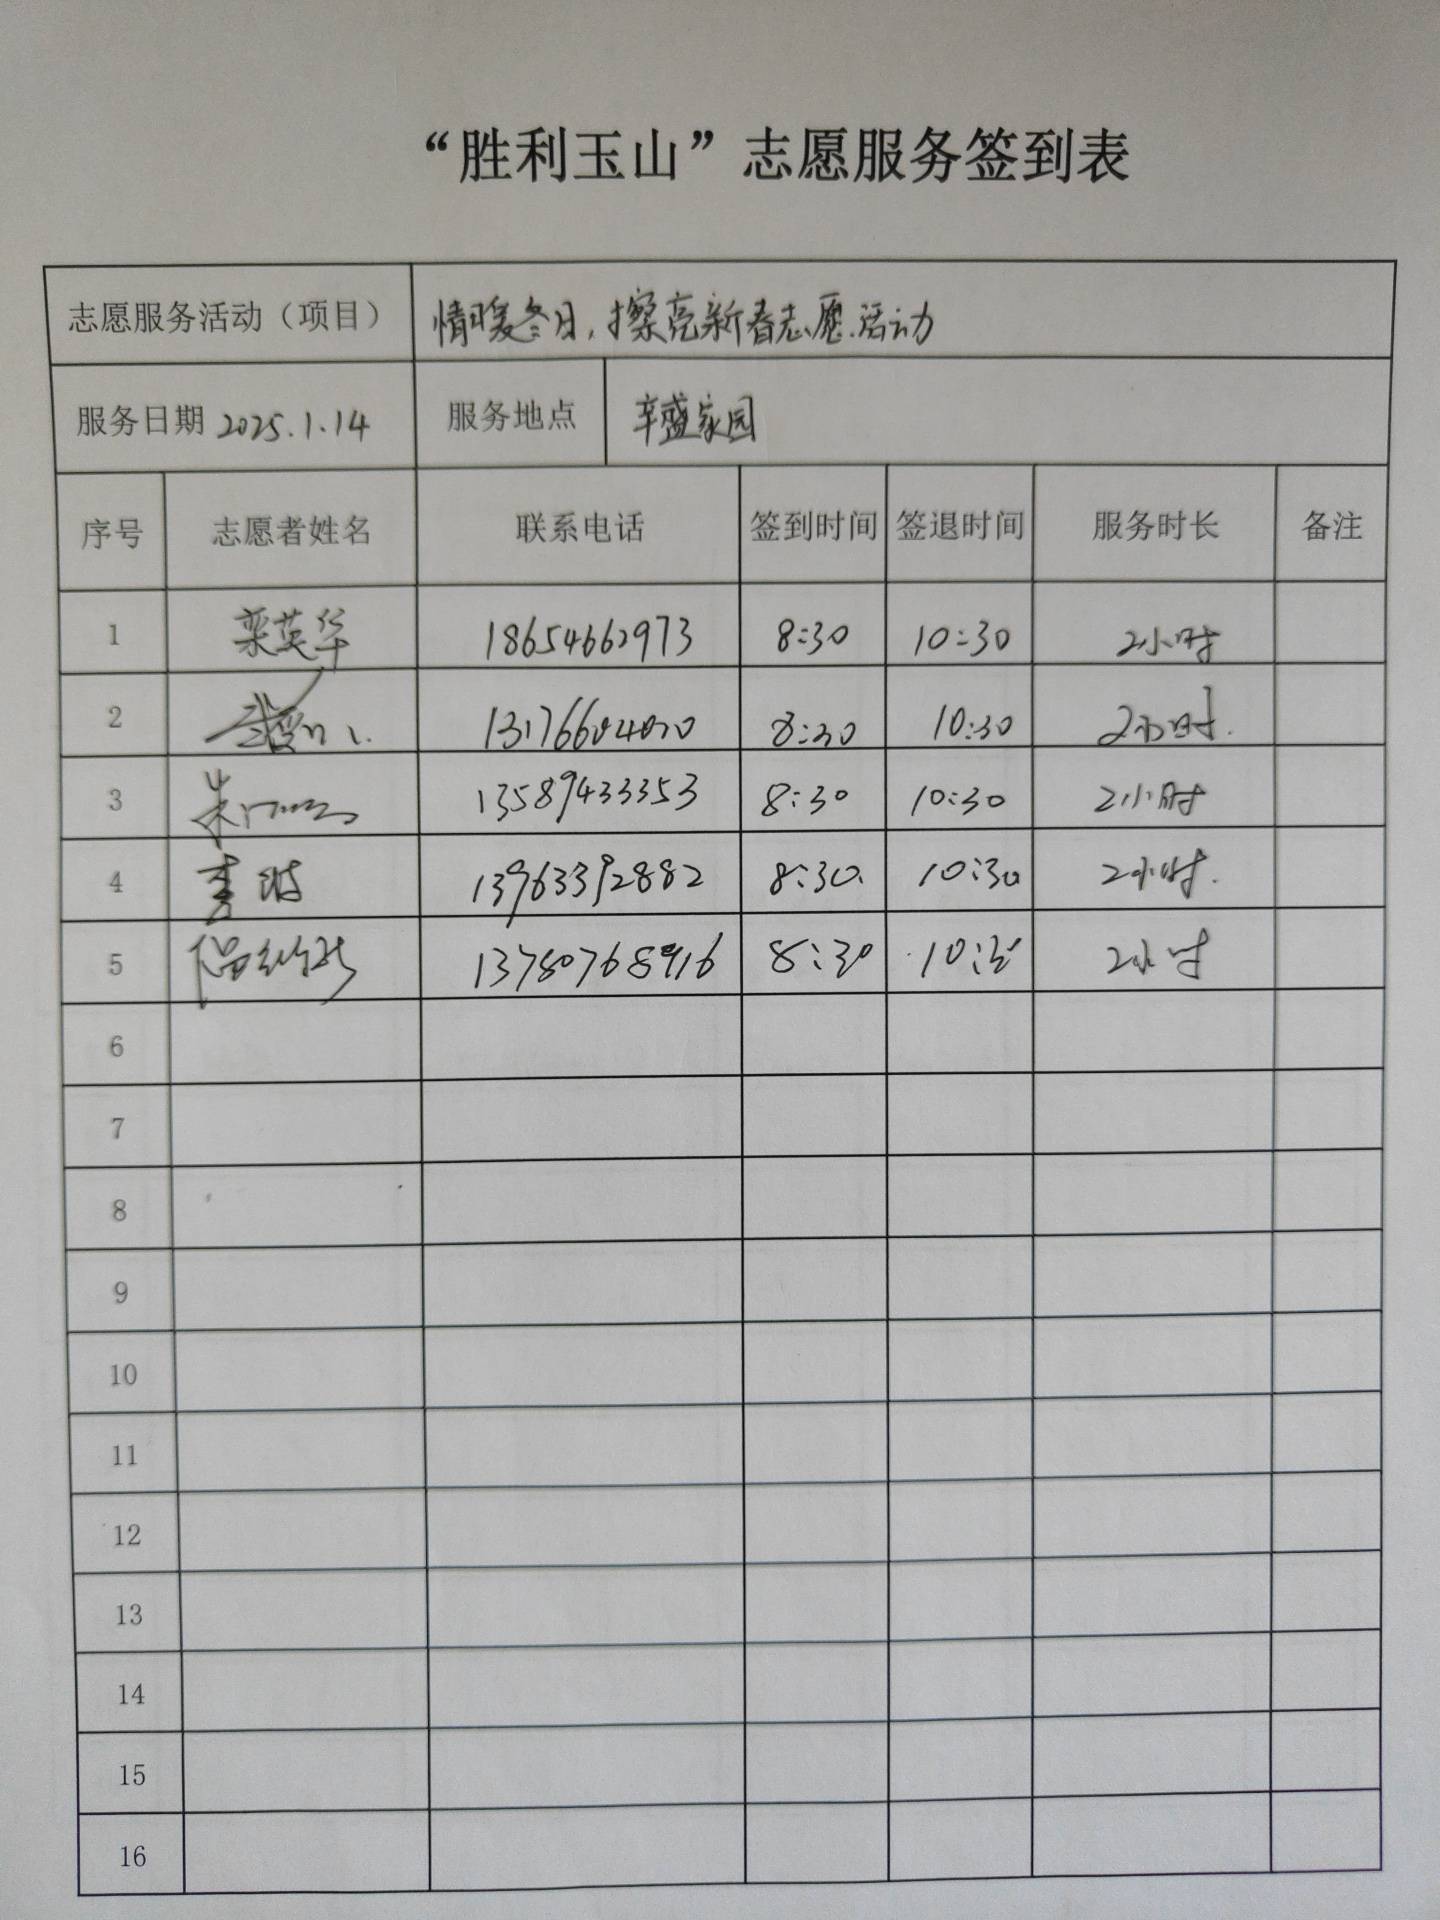 “胜利玉山”志愿服务签到表
志愿服务活动（项目） 情暖冬日，擦亮新春志愿活动
服务日期 2025.1.14 服务地点 辛盛家园
序号 志愿者姓名 联系电话 签到时间 签退时间 服务时长 备注
1 栾英华 18654662973 8:30 10:30 2小时
2 13176604020 8:30 10:30 2小时.
3 朱 13589433353 8:30 10:30 2小时
4 李 13963392882 8:30. 10:30 2小时.
5 13780768916 8:30 10:30 2小时
6
7
8
9
10
11
12
13
14
15
16